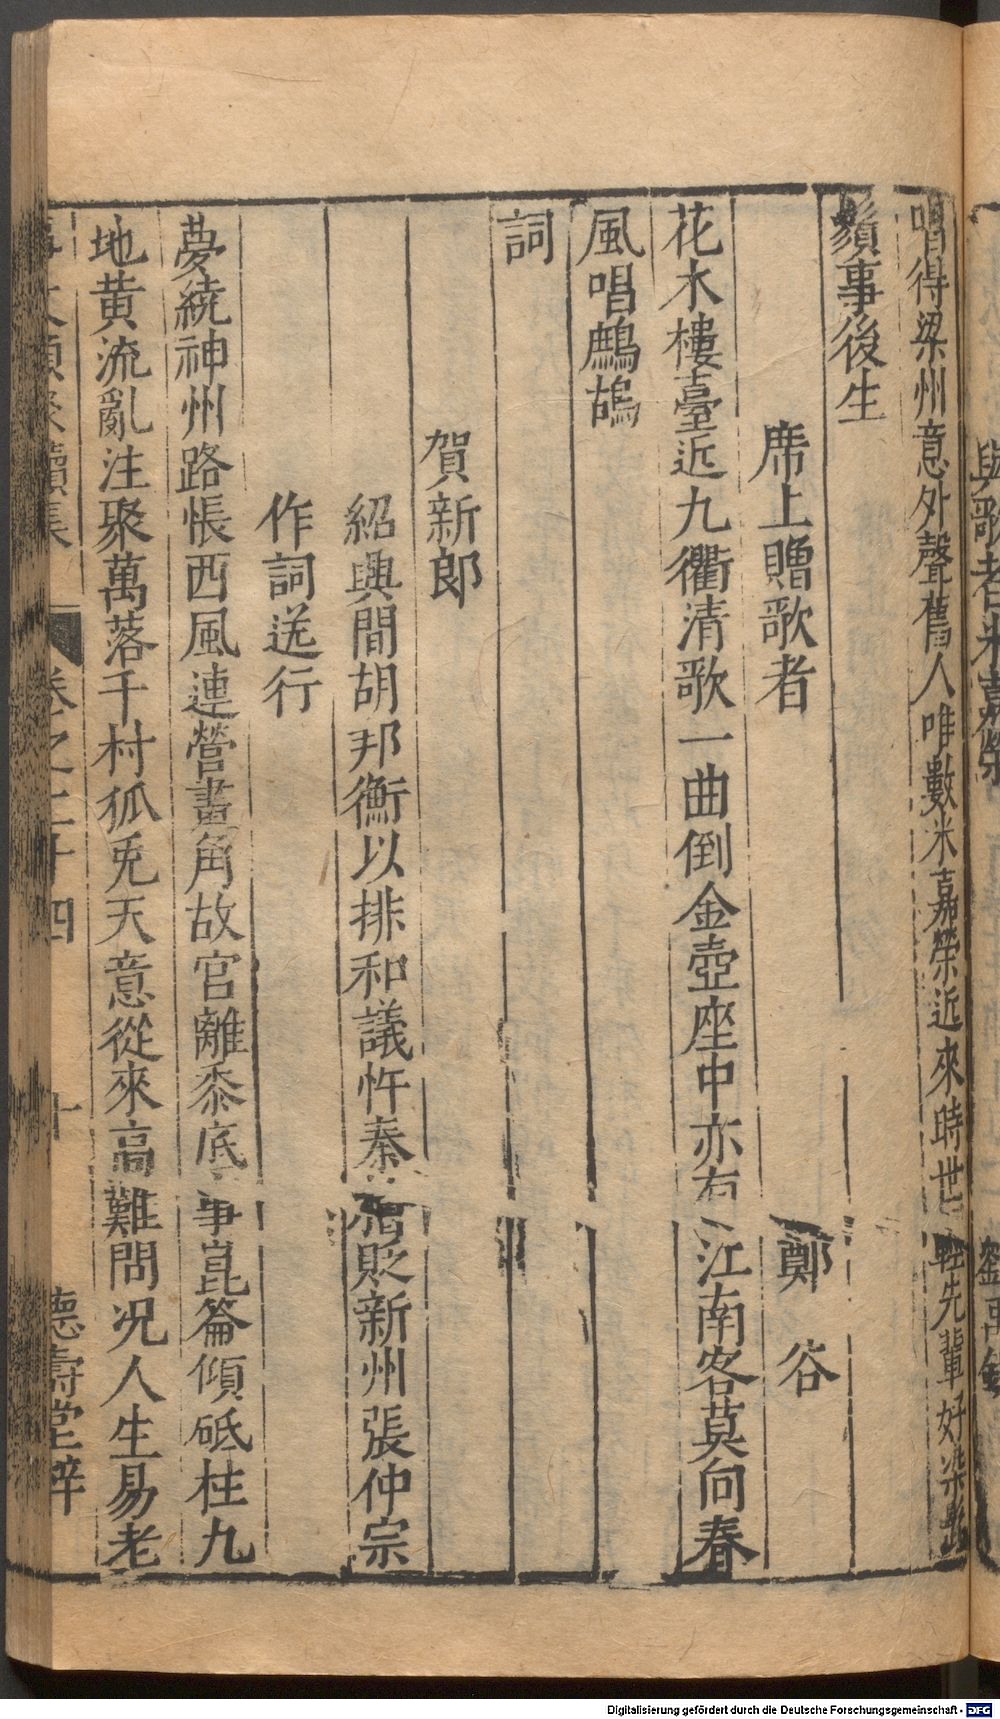 與歌者米嘉榮
唱得梁州意外聲舊人唯數米嘉榮近來時世輕先輩好染髭
鬚事後生
席上贈歌者 鄭谷
花水樓臺近九衢清歌一曲倒金壺座中亦有江南客莫向春
風唱鷓鴣
詞
賀新郎
紹興間胡邦衡以排和議忤秦 貶新州張仲宗
作詞送行
夢繞神州路悵西風連營畫角故宮離黍底事崑崙傾砥柱九
地黃流亂注聚萬落千村狐兎天意從來高難問况人生易老
卷之二十四 十 德壽堂梓
Digitalisierung gefördert durch die Deutsche Forschungsgemeinschaft - DFG